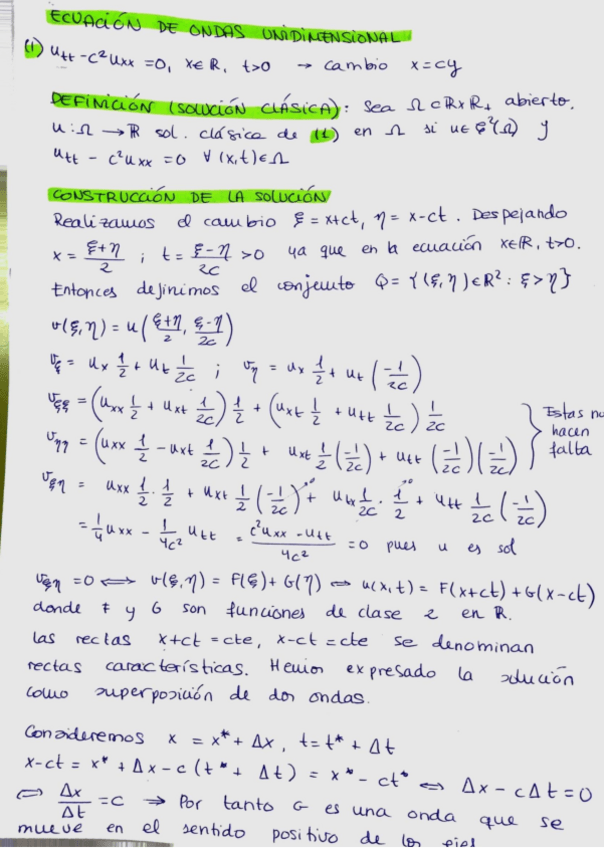 ECUACIÓN DE ONDAS UNIDIMENSIONAL
(1) u_tt - c²u_xx = 0, x∈ℝ, t>0 → cambio x=cy
DEFINICIÓN (SOLUCIÓN CLÁSICA): Sea Ω⊂ℝxℝ₊ abierto.
u:Ω → ℝ sol. clásica de (1) en Ω si u∈ℰ²(Ω) y
u_tt - c²u_xx = 0 ∀(x,t)∈Ω
CONSTRUCCIÓN DE LA SOLUCIÓN
Realizamos el cambio ξ = x+ct, η = x-ct. Despejando
x = (ξ+η)/2 ; t = (ξ-η)/2c > 0 ya que en la ecuación x∈ℝ, t>0.
Entonces definimos el conjunto Q = {(ξ,η)∈ℝ² : ξ>η}
v(ξ,η) = u((ξ+η)/2, (ξ-η)/2c)
v_ξ = u_x 1/2 + u_t 1/2c ; v_η = u_x 1/2 + u_t (-1/2c)
v_ξξ = (u_xx 1/2 + u_xt 1/2c) 1/2 + (u_xt 1/2 + u_tt 1/2c) 1/2c
v_ηη = (u_xx 1/2 - u_xt 1/2c) 1/2 + u_xt 1/2 (-1/2c) + u_tt (-1/2c)(-1/2c)
Estas no
hacen
falta
v_ξη = u_xx 1/2 · 1/2 + u_xt 1/2 (-1/2c) + u_tx 1/2c · 1/2 + u_tt 1/2c (-1/2c)
= 1/4 u_xx - 1/4c² u_tt = (c²u_xx - u_tt)/4c² = 0 pues u es sol
v_ξη = 0 ⟺ v(ξ,η) = F(ξ) + G(η) ⟺ u(x,t) = F(x+ct) + G(x-ct)
donde F y G son funciones de clase 2 en ℝ.
las rectas x+ct = cte, x-ct = cte se denominan
rectas características. Hemos expresado la solución
como superposición de dos ondas.
Consideremos x = x* + Δx, t = t* + Δt
x-ct = x* + Δx - c(t* + Δt) = x* - ct* ⟺ Δx - cΔt = 0
⟺ Δx/Δt = c → Por tanto G es una onda que se
mueve en el sentido positivo de los ejes